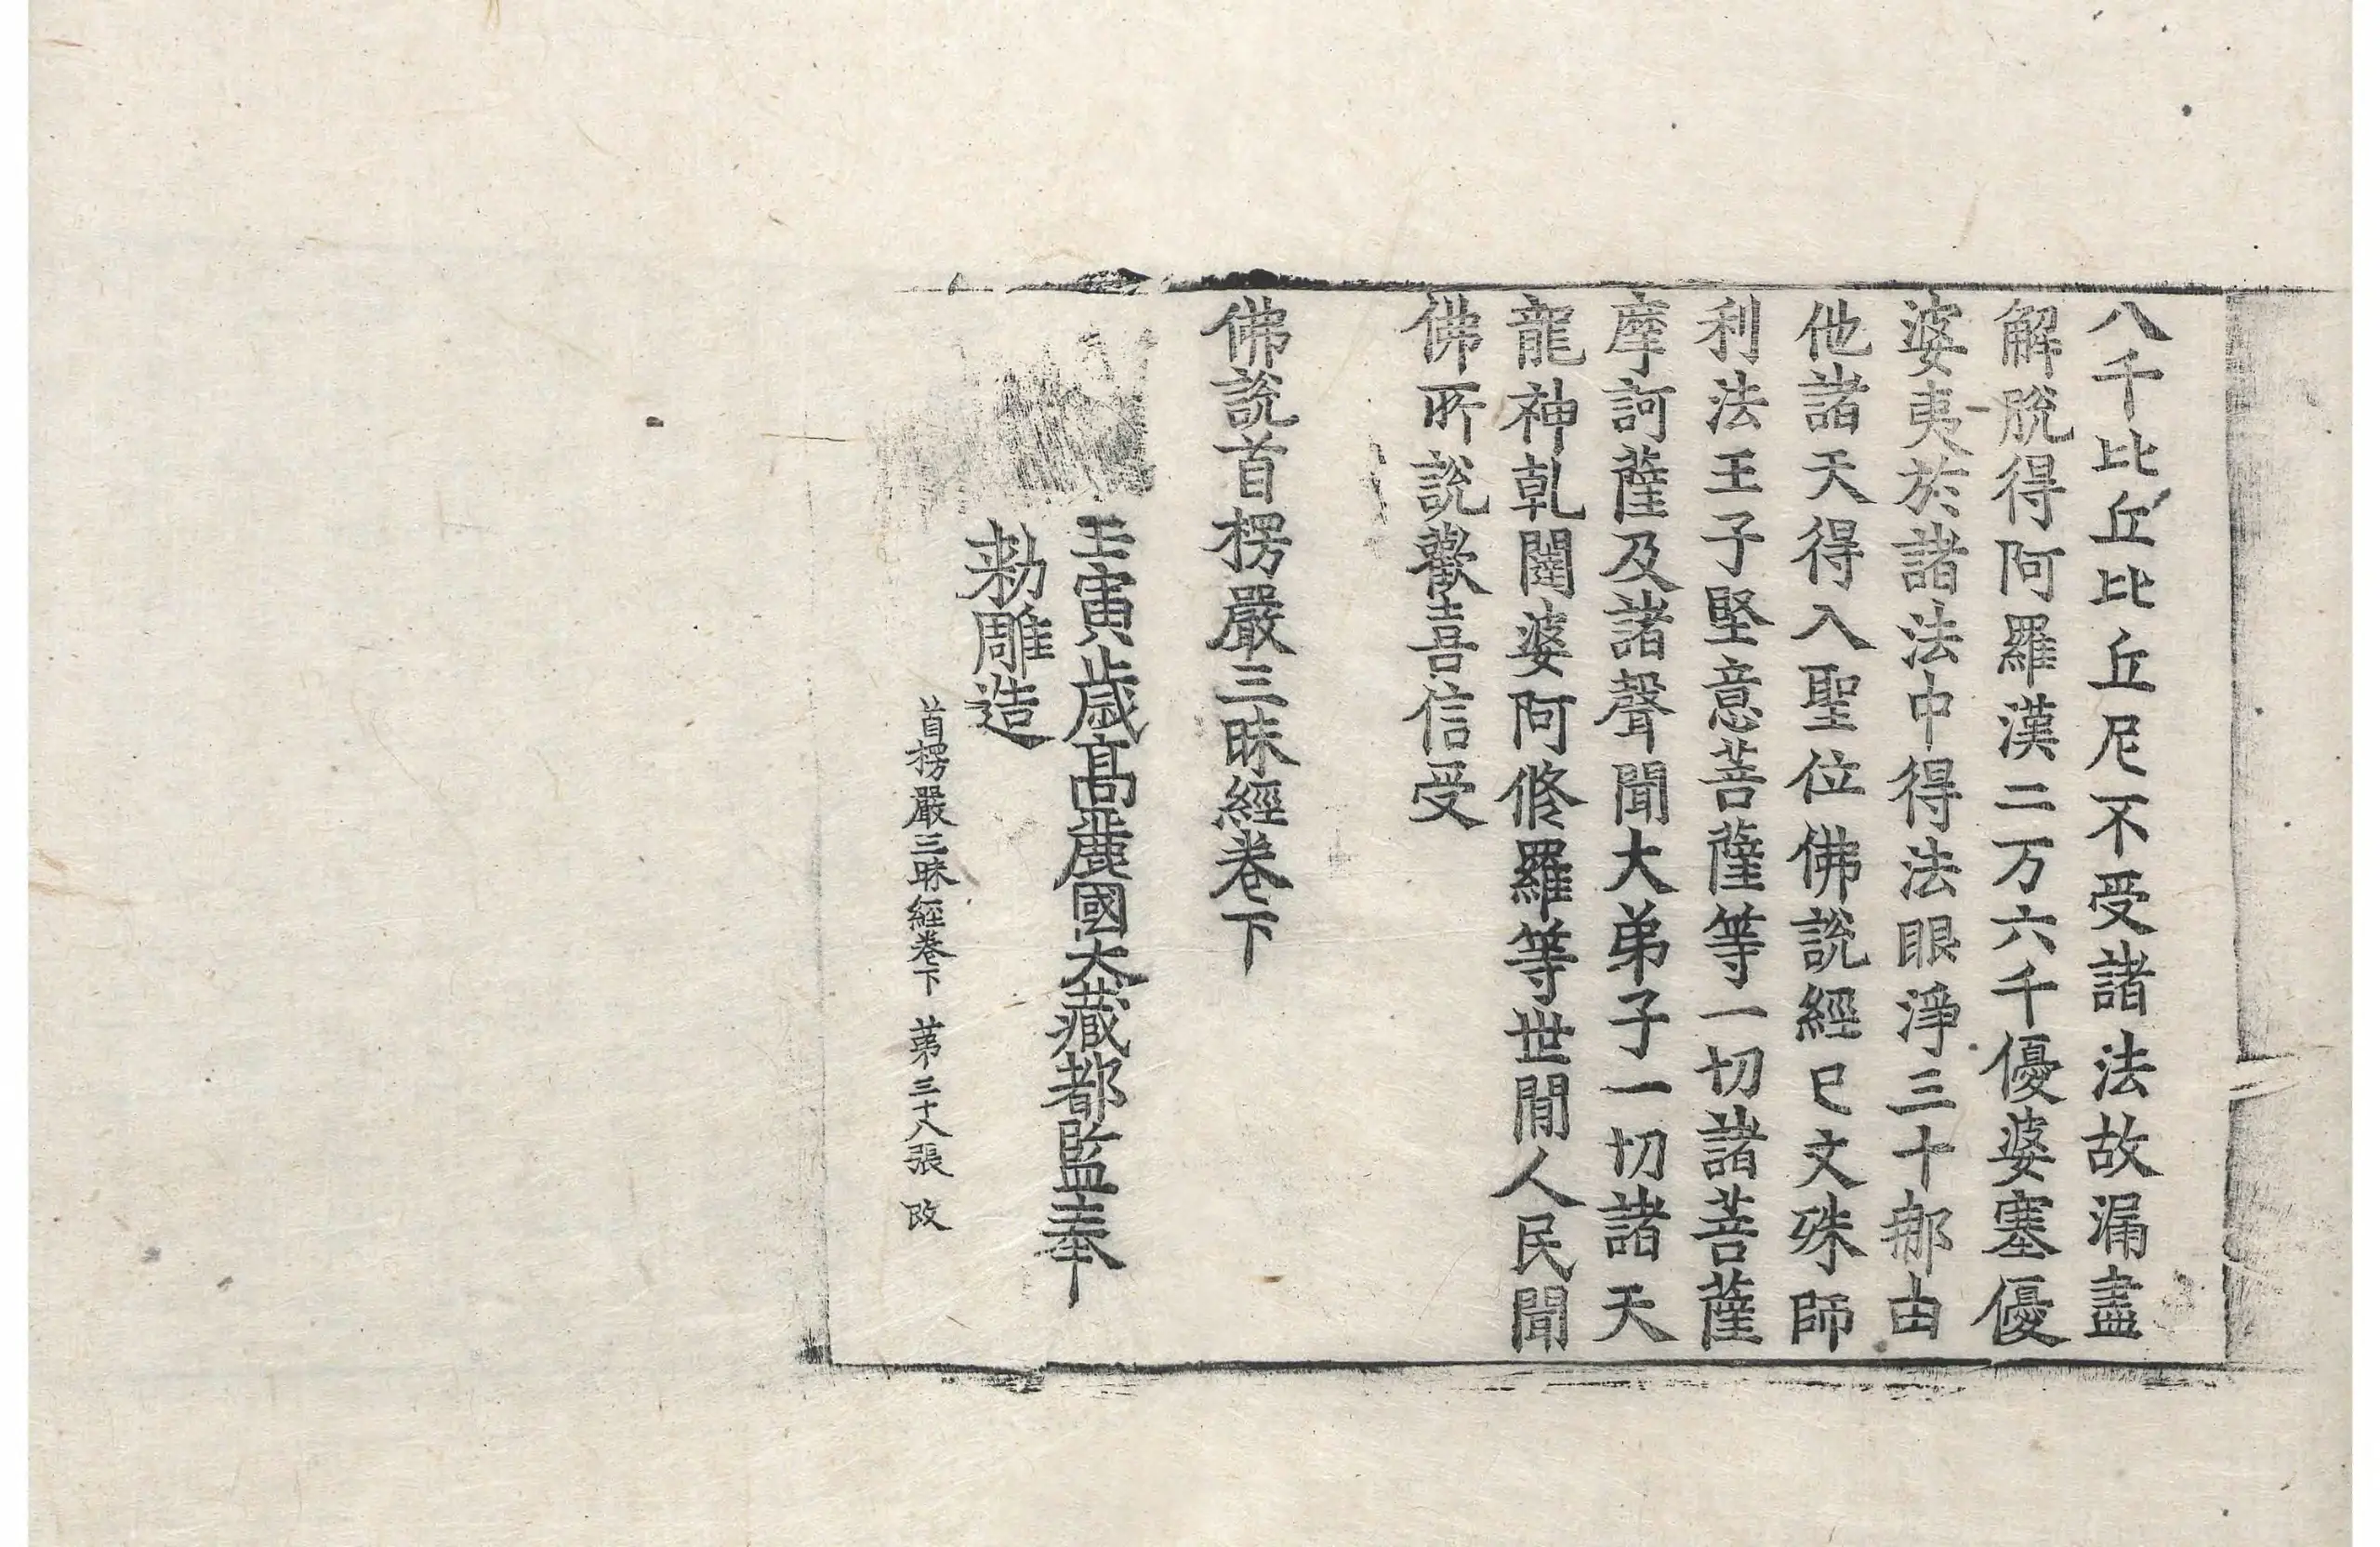 八千比丘比丘尼不受諸法故漏盡
解脫得阿羅漢二万六千優婆塞優
婆夷於諸法中得法眼淨三十那由
他諸天得入聖位佛說經已文殊師
利法王子堅意菩薩等一切諸菩薩
摩訶薩及諸聲聞大弟子一切諸天
龍神乾闥婆阿修羅等世間人民聞
佛所說歡喜信受
佛說首楞嚴三昧經卷下
壬寅歲高麗國大藏都監奉
勑雕造
首楞嚴三昧經卷下 第三十八張 改